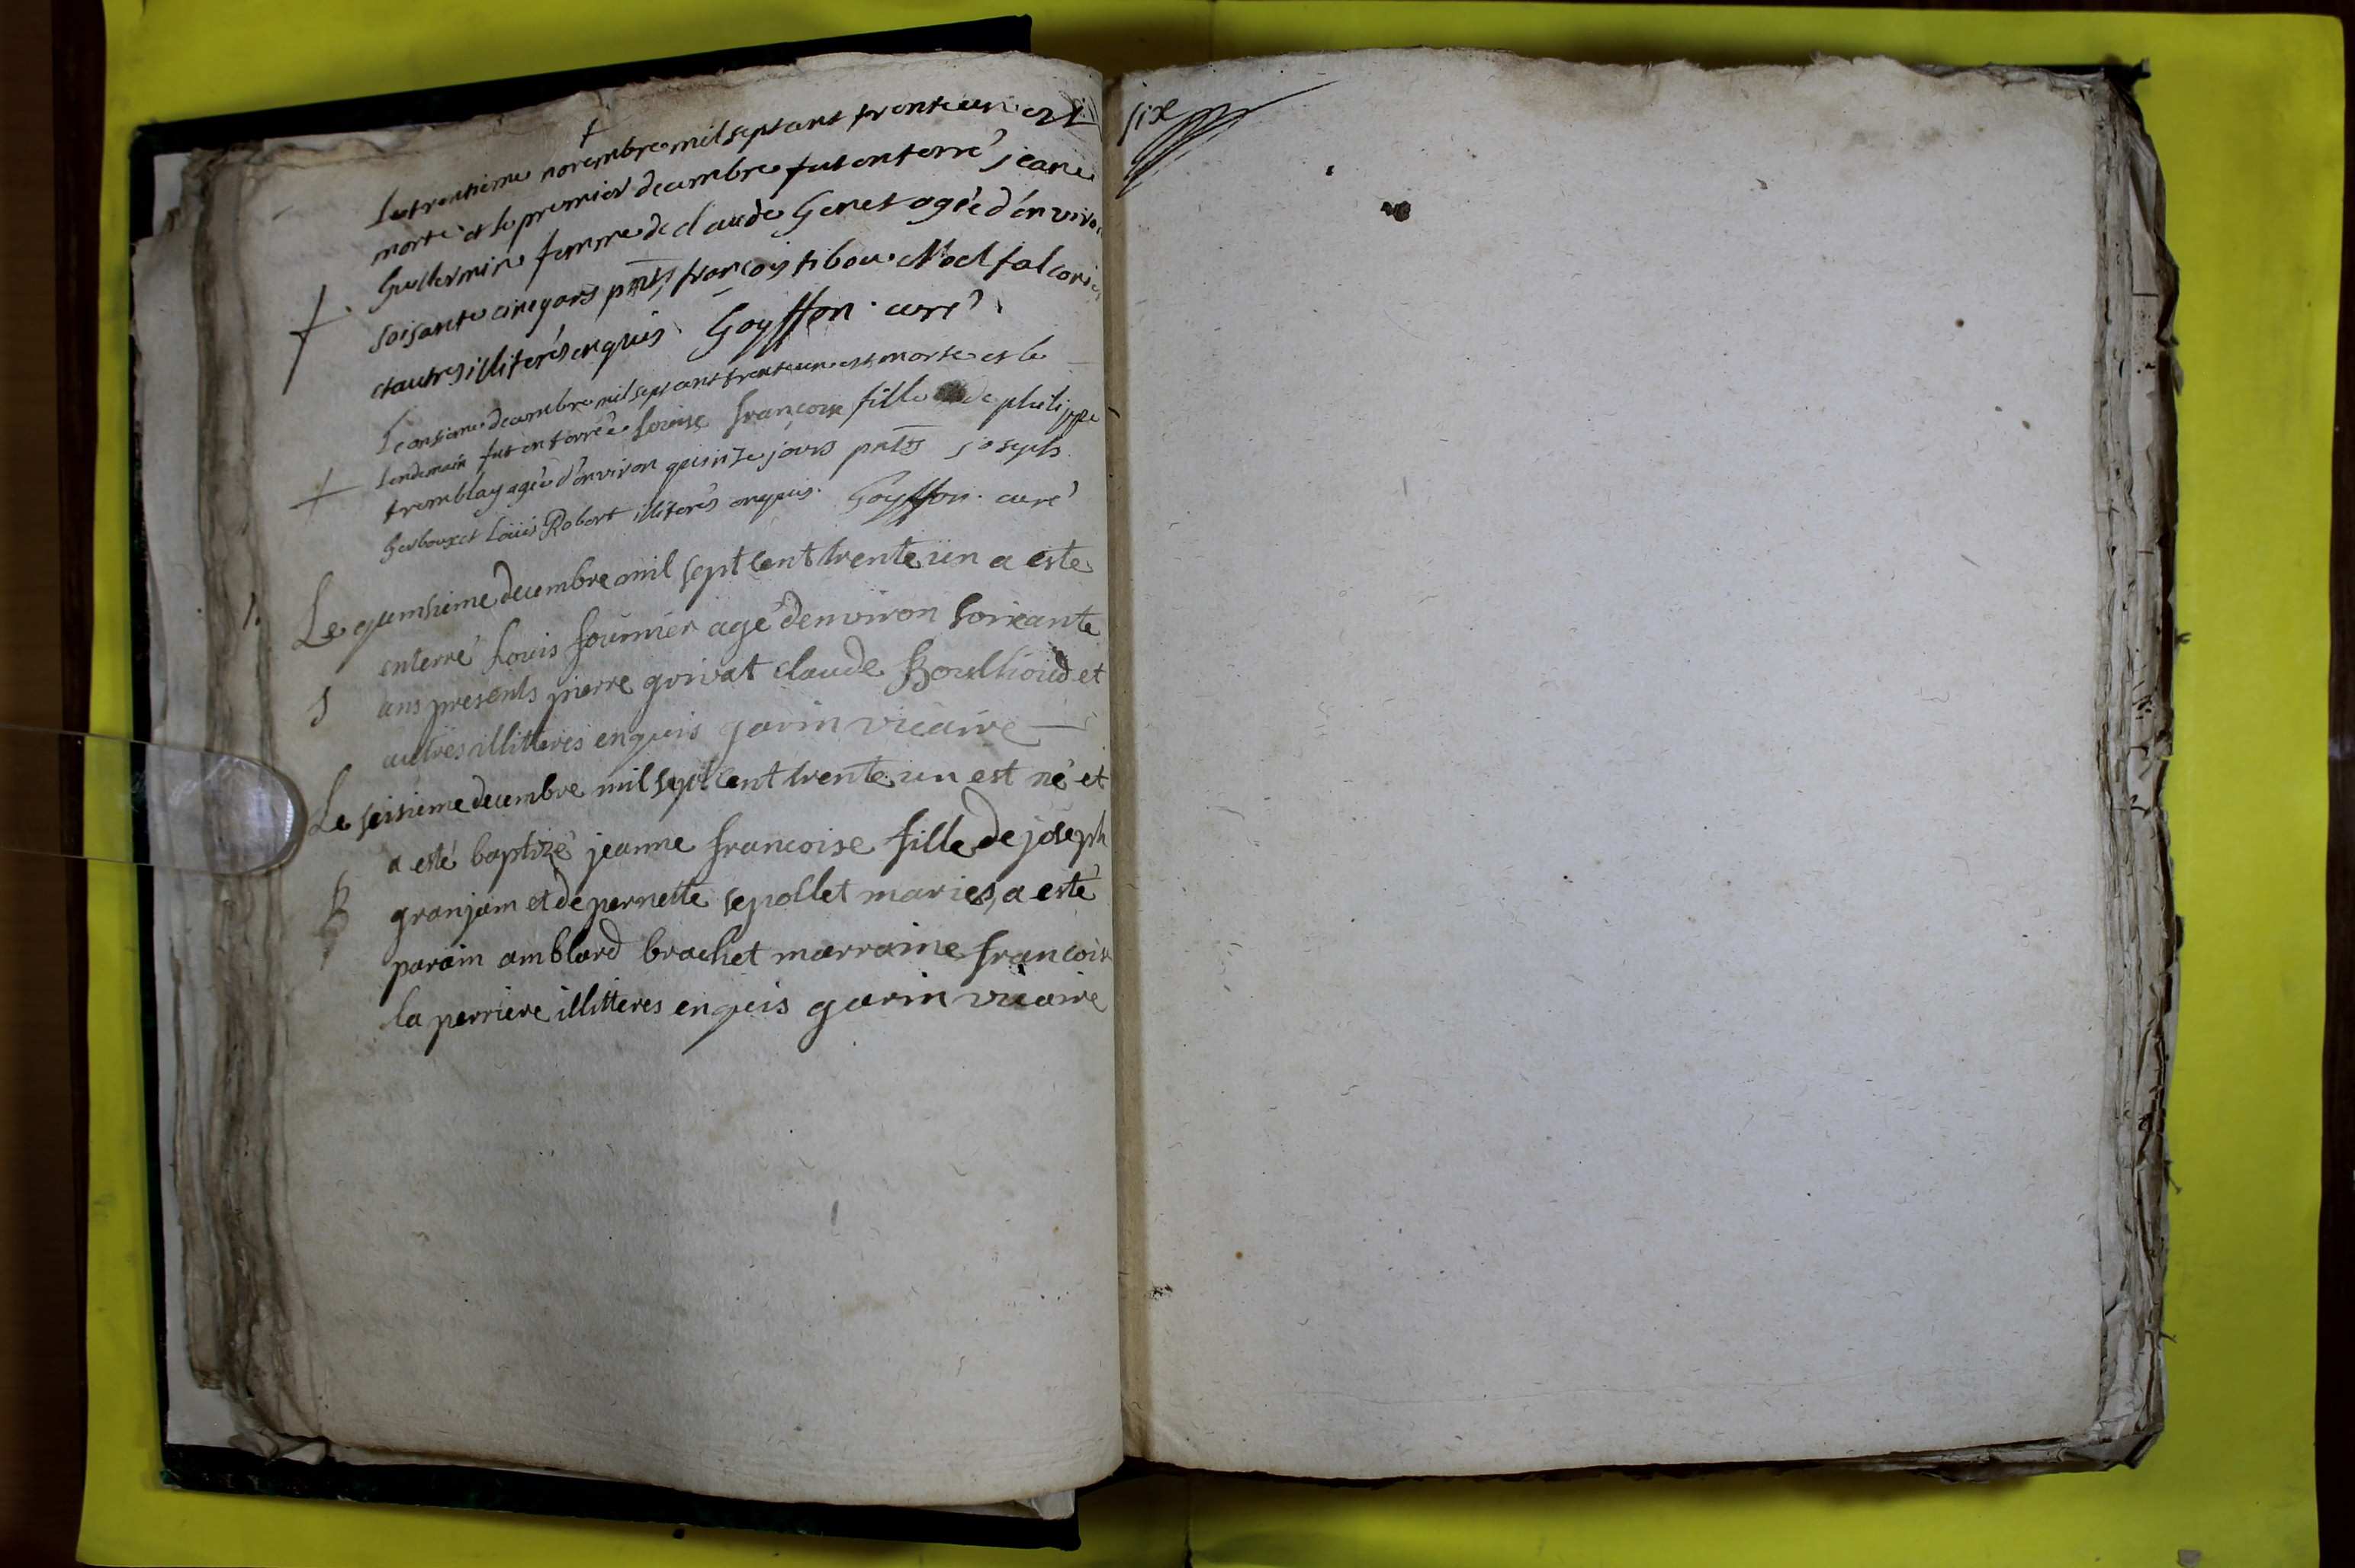 †
Le trentieme novembre mil sept cent trente un est
morte et le premier decembre fut enterré jeane
† Guillermin femme de claude Genet agée d'environ
soisante cinq ans pnts françois tibou Noel falconi
et autres illiterés enquis. Goyffon. curé
Le onsieme decembre mil sept cent trente un est morte et le
† lendemain fut enterrée Louise françoise fille de philippe
tremblay agée d'environ quinze jours pnts joseph
Gerboux et Louis Robert illiterés enquis. Goyffon. curé
Le quinsieme decembre mil sept cent trente un a este
enterré Louis fournier agé denviron soixante
S ans presents pierre grivat claude Boulhoud et
autres illitteres enquis garin vicaire
Le seisieme decembre mil sept cent trente un est né et
a esté baptizé jeanne francoise fille de joseph
B granjam et de pernette sepollet maries, a esté
parain amblard brachet marraine francoise
la perriere illitteres enquis garin vicaire
six